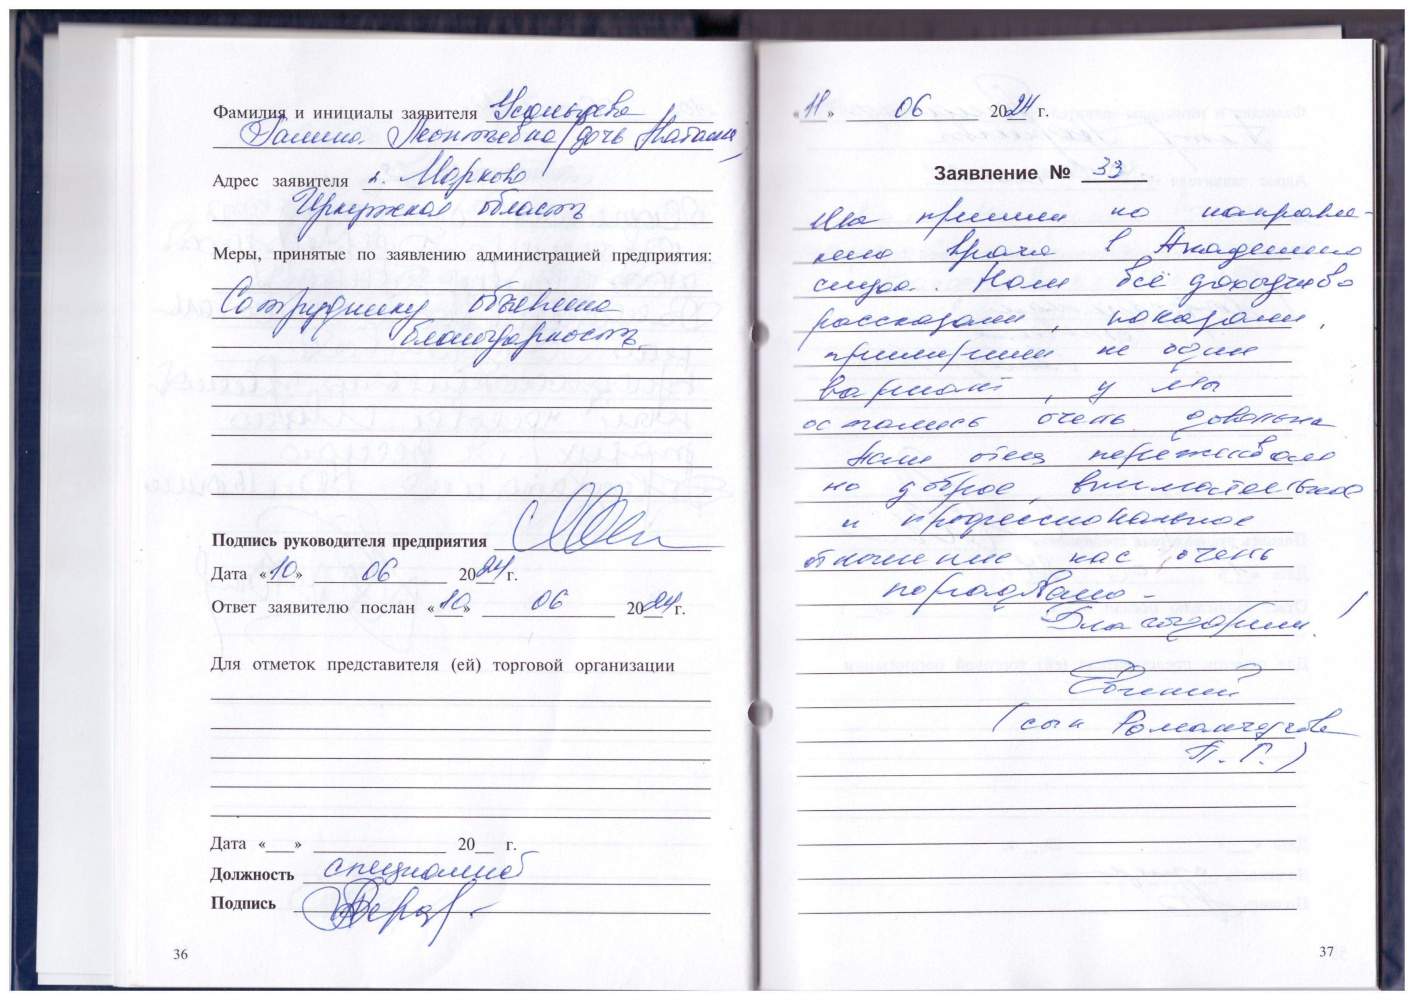 Фамилия и инициалы заявителя Усольцева
Галина Леонтьевна (дочь Наталия)
Адрес заявителя п. Маркова
Иркутская область
Меры, принятые по заявлению администрацией предприятия:
Сотруднику объявлена
благодарность
Подпись руководителя предприятия
Дата «10» 06 2024 г.
Ответ заявителю послан «10» 06 2024 г.
Для отметок представителя (ей) торговой организации
Дата «___» 20__ г.
Должность специалист
Подпись
36
«11» 06 2024 г.
Заявление № 33
Мы пришли по направле-
нию врача в Академию
слуха. Нам всё доходчиво
рассказали, показали,
примерили не один
вариант, и мы
остались очень довольны
Наш отец переживал
но доброе, внимательное
и профессиональное
отношение нас очень
порадовало -
Благодарим!
Евгений
(сын
П. Г.)
37